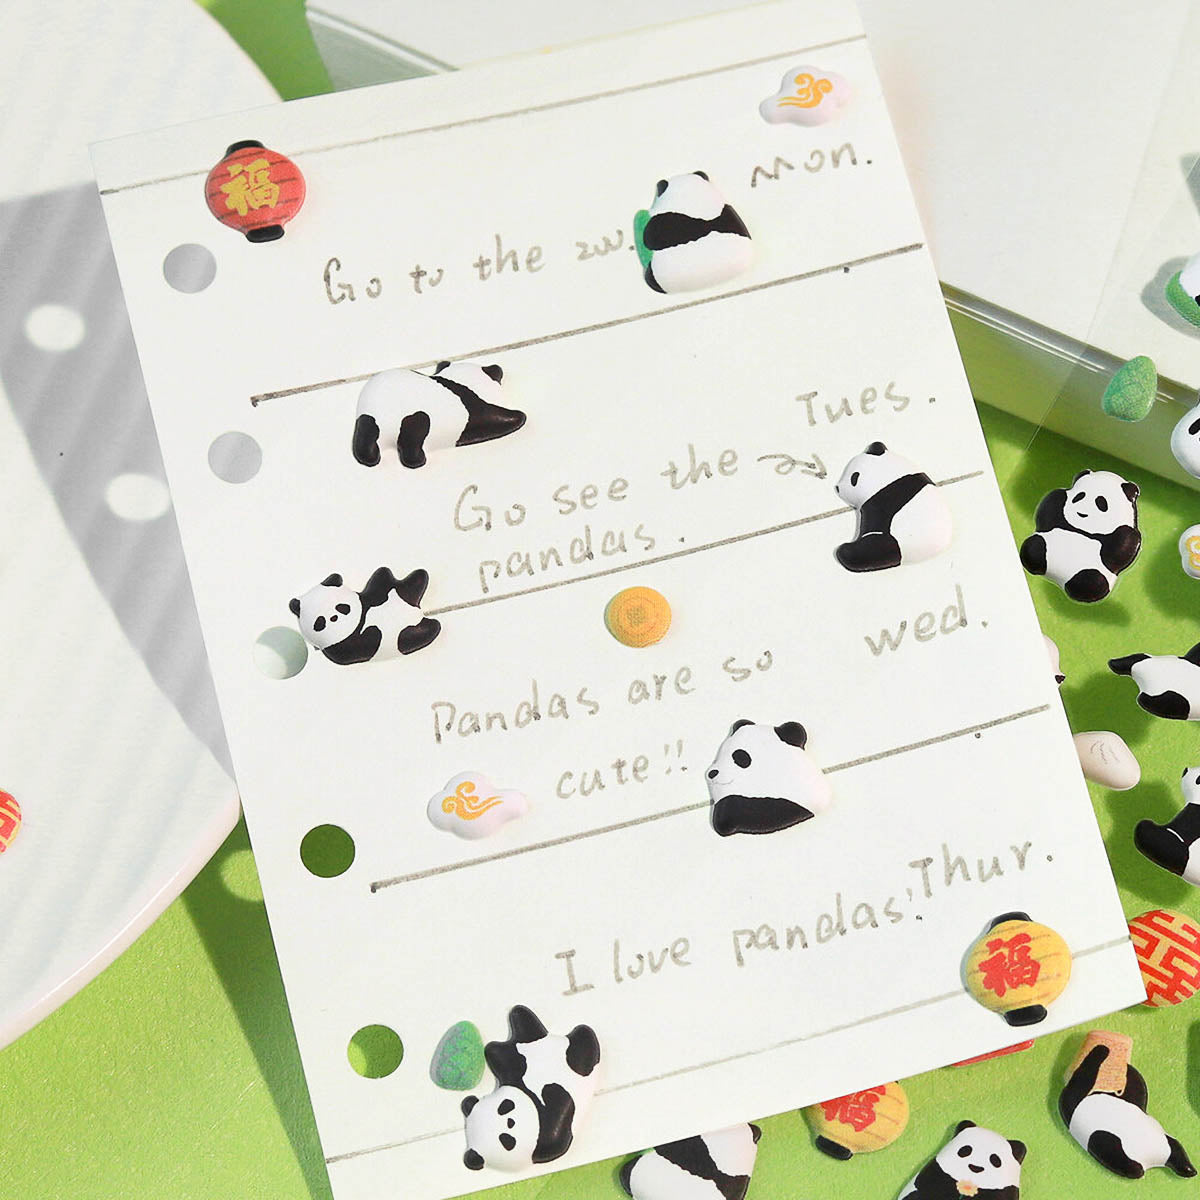 福
Mon.
Go to the zoo.
Tues.
Go see the
pandas.
Wed.
Pandas are so
cute!!
Thur.
I love pandas!!
福
福